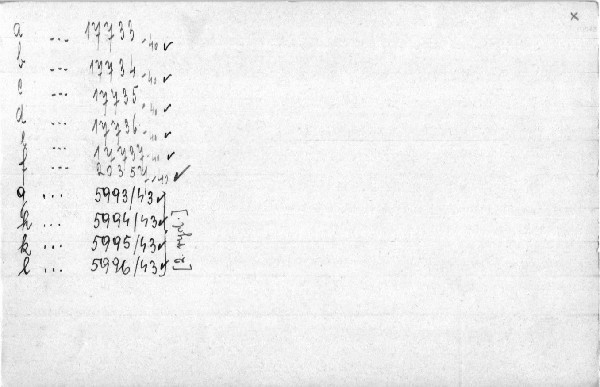 x
a ... 17733 -40 ✓
b ... 17734 -40 ✓
c ... 17735 -40 ✓
d ... 17736 -40 ✓
... 17737 -40 ✓
... 20357 -42 ✓
... 5993/43 ✓
... 5994/43 ✓
k ... 5995/43 ✓
l ... 5996/43 ✓